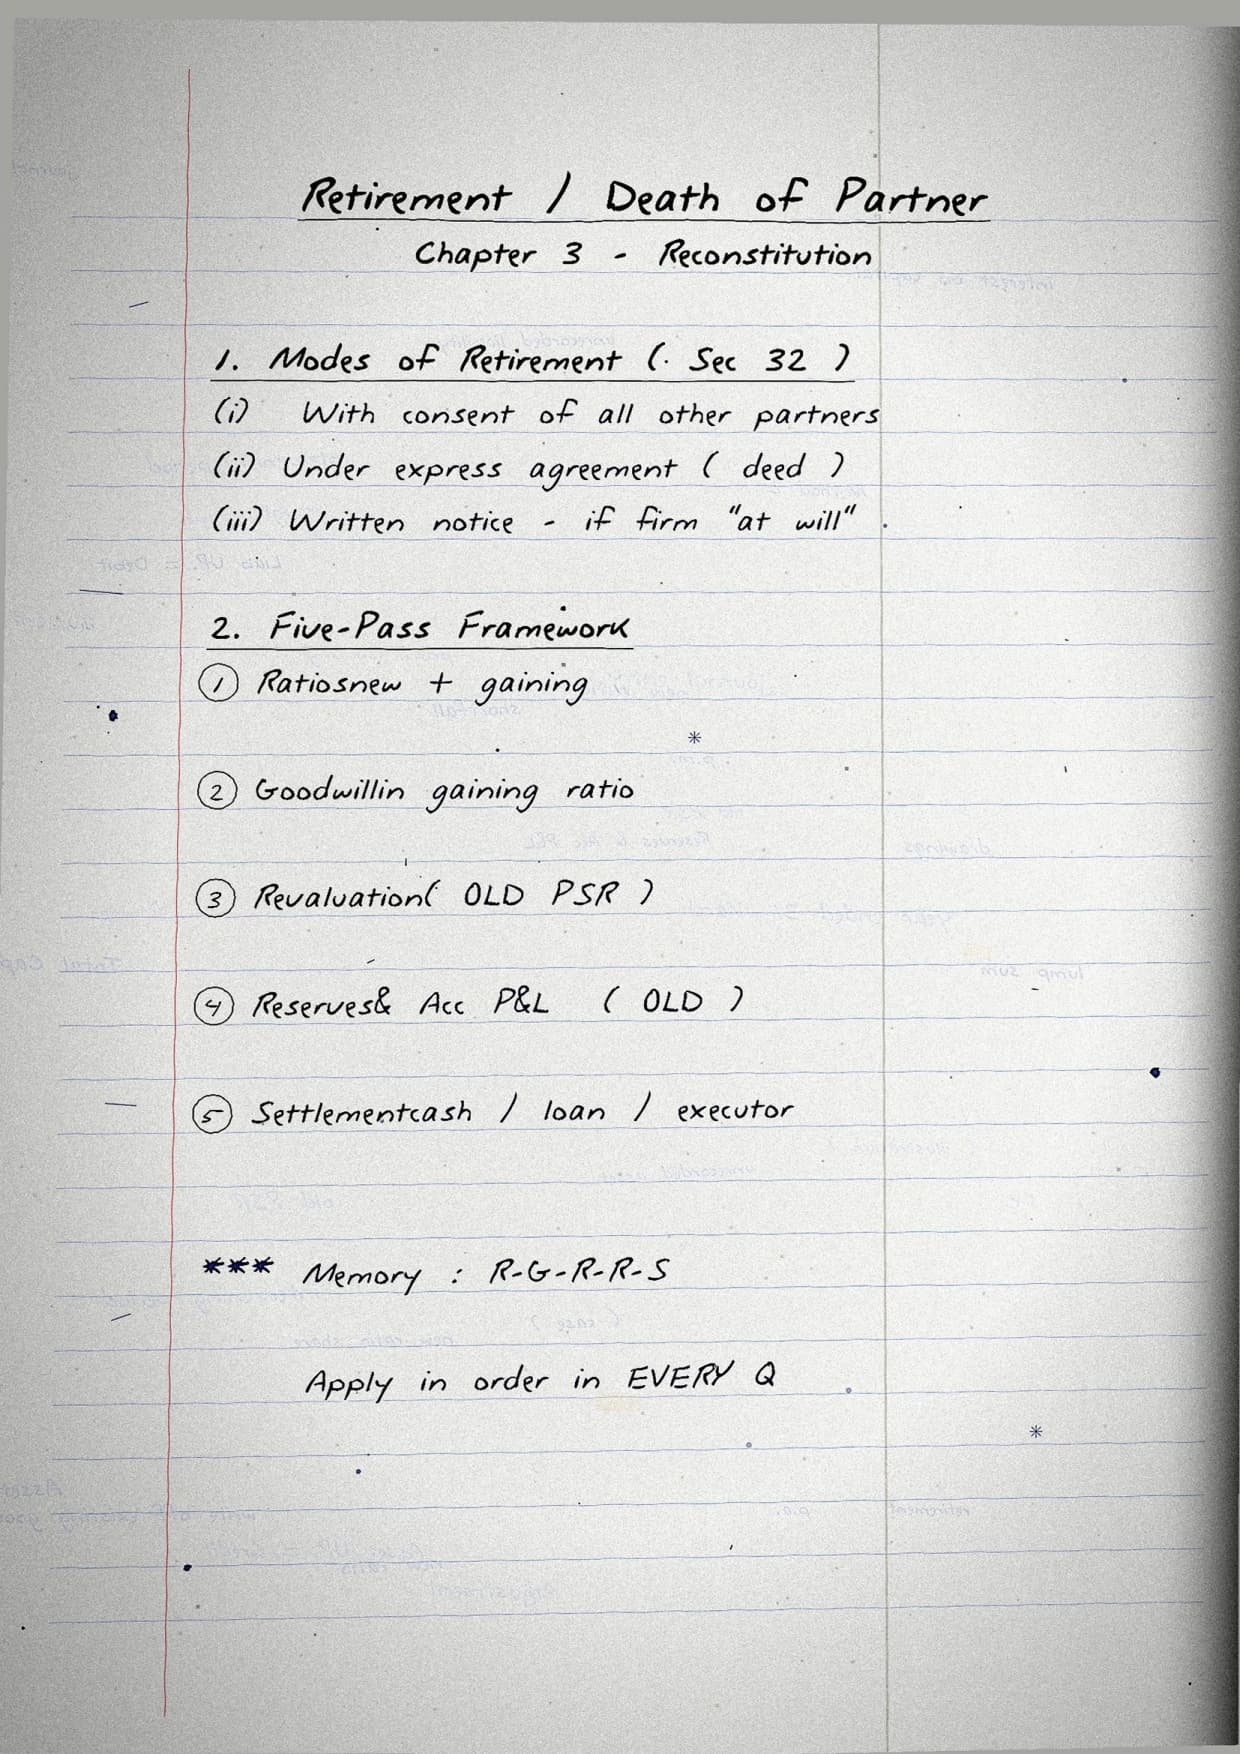 Retirement / Death of Partner
Chapter 3 - Reconstitution
1. Modes of Retirement ( Sec 32 )
(i) With consent of all other partners
(ii) Under express agreement ( deed )
(iii) Written notice - if firm "at will"
2. Five-Pass Framework
① Ratiosnew + gaining
② Goodwillin gaining ratio
③ Revaluation( OLD PSR )
④ Reserves& Acc P&L ( OLD )
⑤ Settlementcash / loan / executor
*** Memory : R-G-R-R-S
Apply in order in EVERY Q